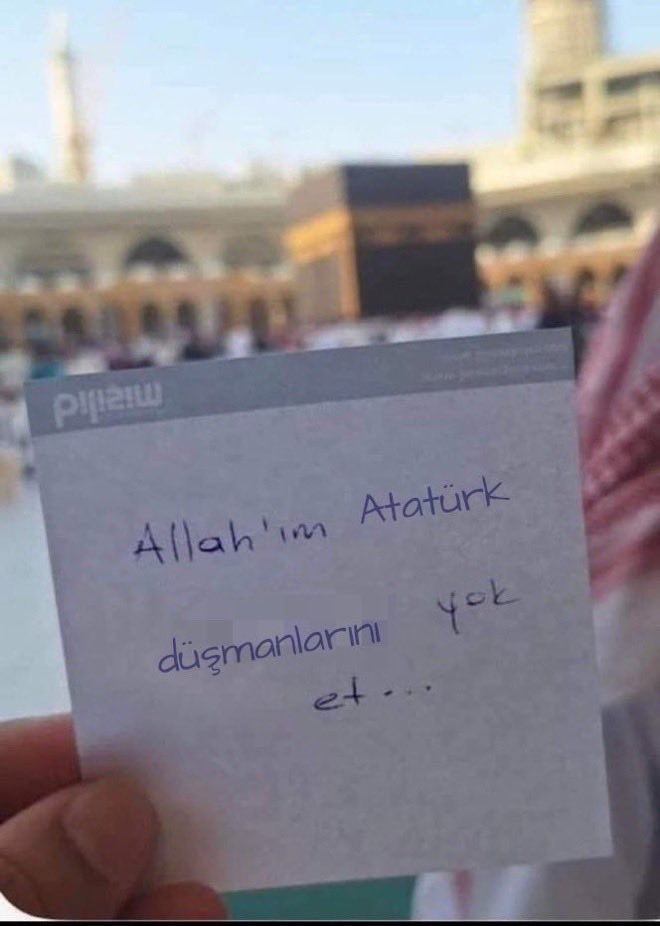 Allah'ım Atatürk
düşmanlarını yok
et...